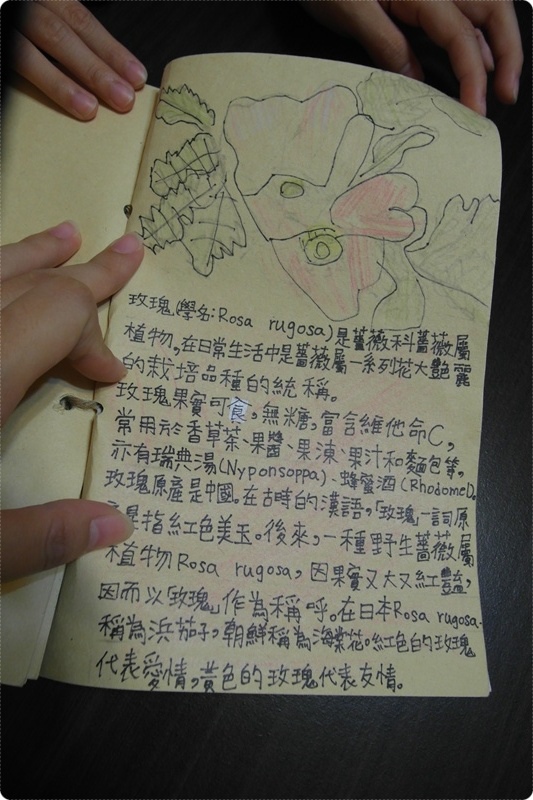 玫瑰(學名:Rosa rugosa)是薔薇科薔薇屬
植物,在日常生活中是薔薇屬一系列花大艷麗
的栽培品種的統稱。
玫瑰果實可食,無糖,富含維他命C,
常用於香草茶、果醬、果凍、果汁和麵包等,
亦有瑞典湯(Nyponsoppa)、蜂蜜酒(RhodomeL)。
玫瑰原產是中國。在古時的漢語,「玫瑰」一詞原
是指紅色美玉。後來,一種野生薔薇屬
植物Rosa rugosa,因果實又大又紅豔,
因而以「玫瑰」作為稱呼。在日本Rosa rugosa
稱為浜茄子,朝鮮稱為海棠花。紅色白的玫瑰
代表愛情,黃色的玫瑰代表友情。